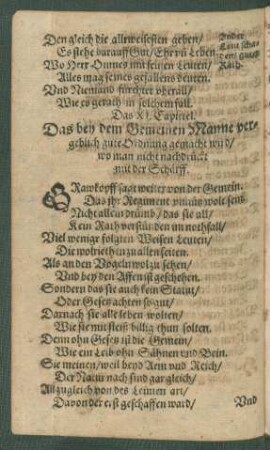 Den gleich die allweisesten geben/
Es stehe darauff Gut/ Ehr vñ Leben.
Wo Herr Omnes mit seinen Leuten/
Alles mag seines gefallens deuten.
Vnd Niemand fürchtet vberall/
Wie es gerath in solchem fall.
Das XI. Capittel.
Das bey dem Gemeinen Manne ver-
geblich gute Ordnung gemacht wird/
wo man nicht nachdrückt
mit der Schärff.
GRawkopff sagt weiter von der Gemein.
Das jhr Regiment
Nicht allein drumb/ das sie all/
Kein Rath verstünden im nothfall/
Viel weniger folgten Weisen Leuten/
Die wolriethen zu allen zeiten.
Als an den Vögeln wol zu sehen/
Vnd bey den Affen ist geschehen.
Sondern das sie auch kein Statut/
Oder Gesetz achten so gut/
Darnach sie alle leben wolten/
Wie sie mit fleiß billig thun solten.
Denn ohn Gesetz ist die Gemein/
Wie ein Leib ohn Sähnen und Bein.
Sie meinen/ weil beyd Arm vnd Reich/
Der Natur nach sind gar gleich/
Allzugleich von des Leimen art/
Davon der erst geschaffen ward/
Vnd